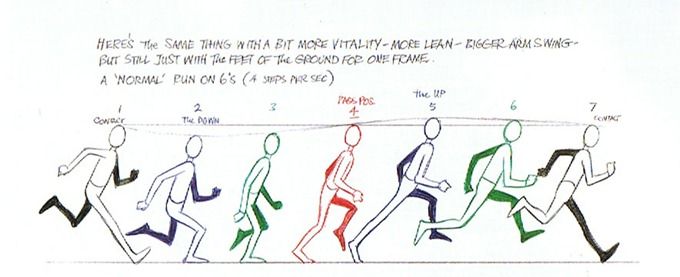 HERE'S THE SAME THING WITH A BIT MORE VITALITY - MORE LEAN - BIGGER ARM SWING -
BUT STILL JUST WITH THE FEET OF THE GROUND FOR ONE FRAME.
A 'NORMAL' RUN ON 6'S (4 STEPS PER SEC)
1
CONTACT
2
THE DOWN
3
PASS POS.
4
THE UP
5
6
7
CONTACT